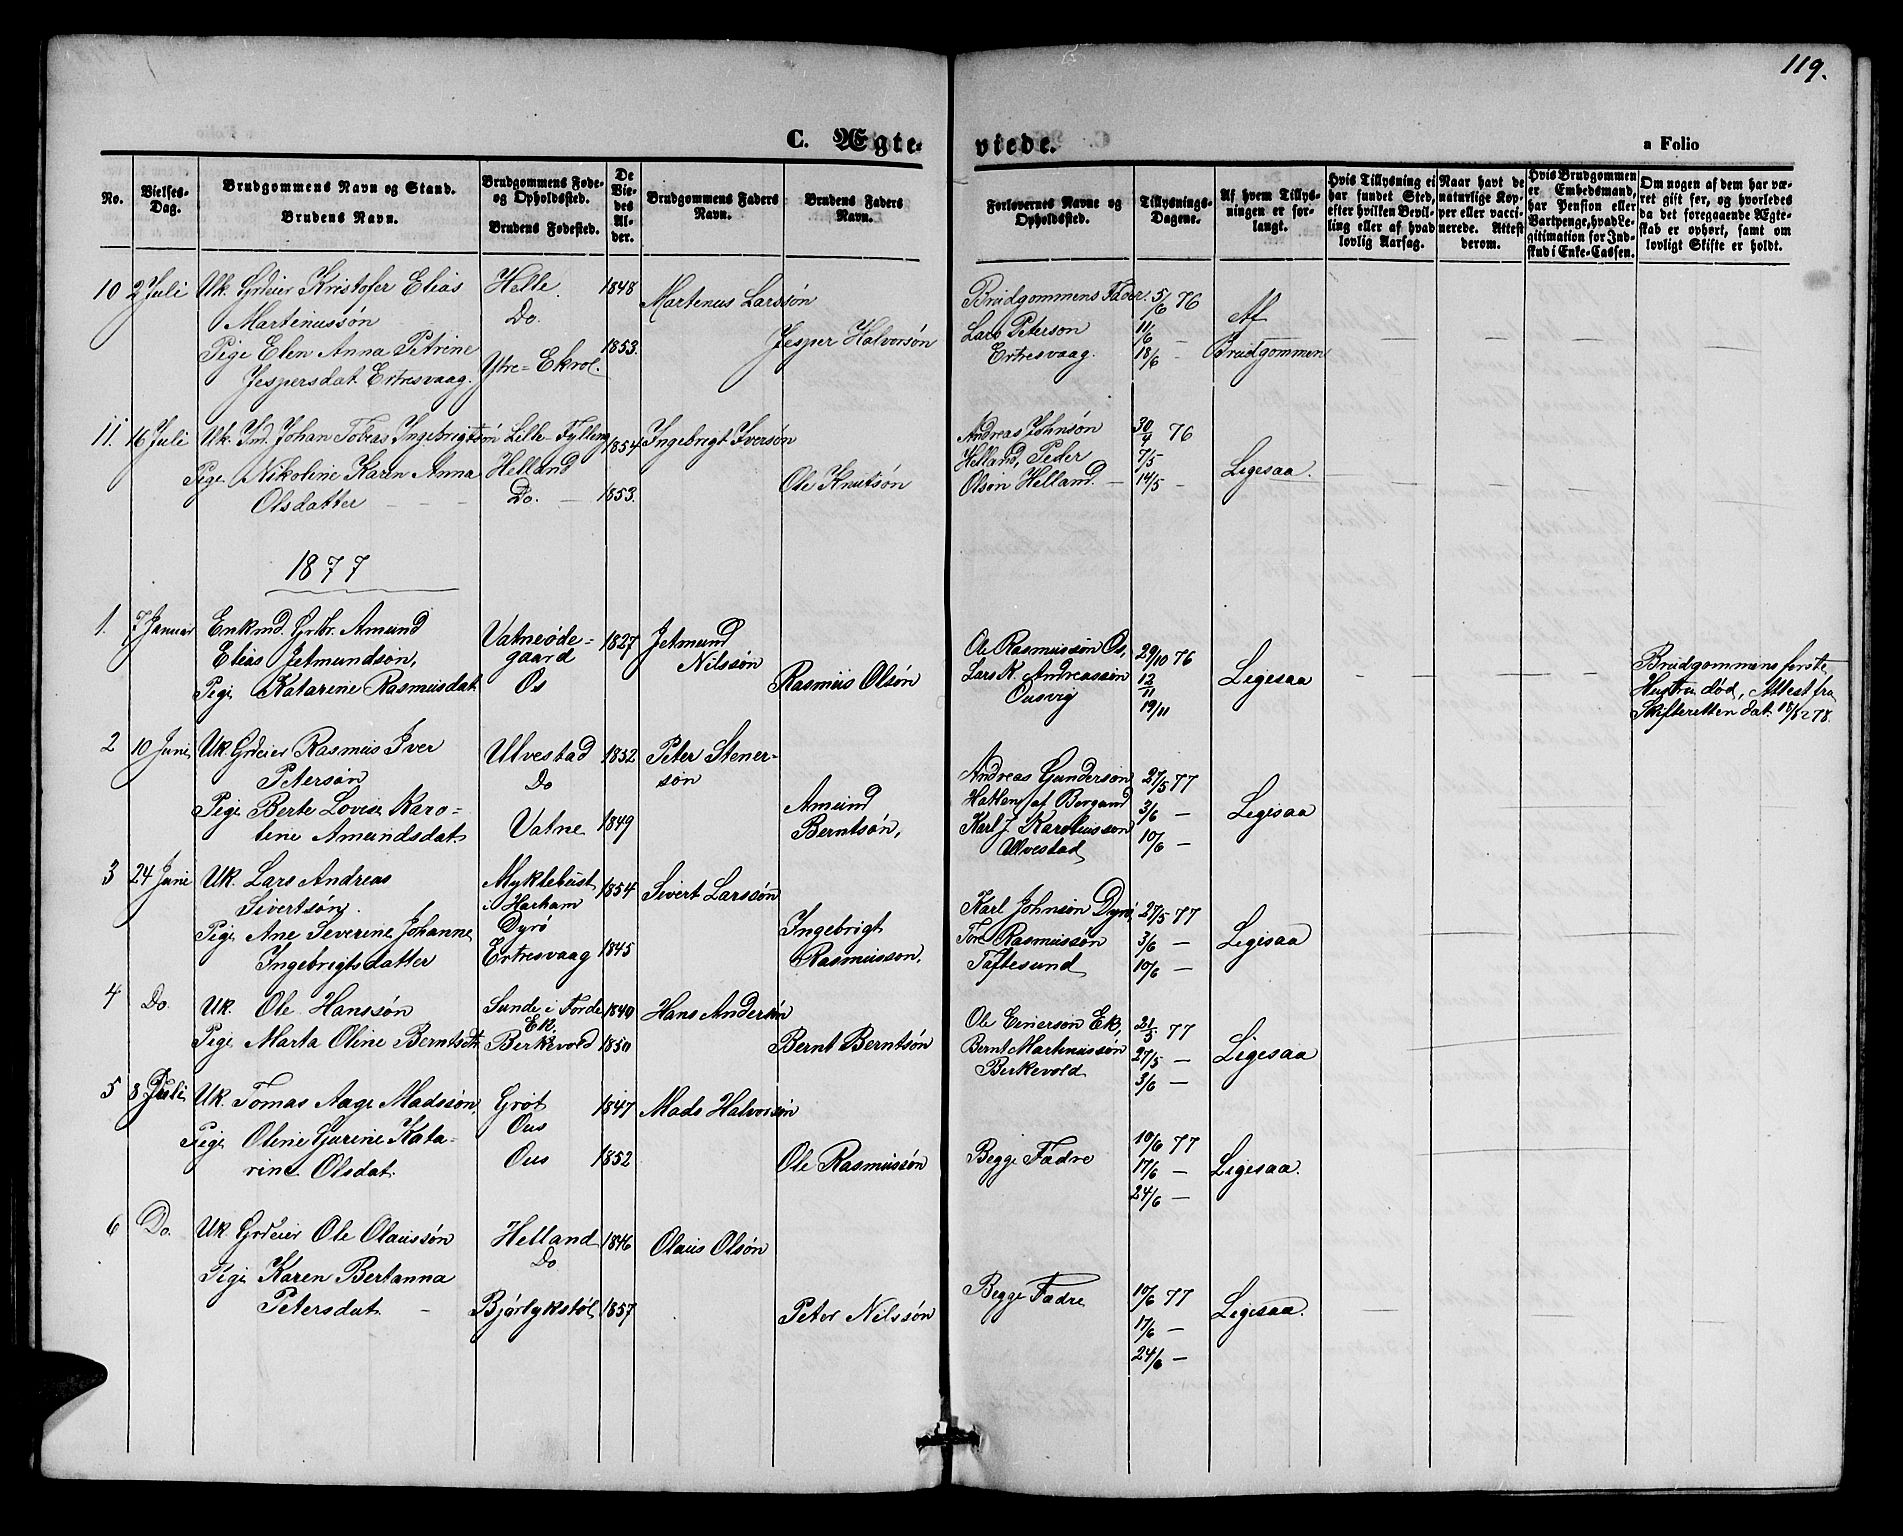 119.
C. Ægte- viede. a Folio
No.
Vielses-
Dag.
Brudgommens Navn og Stand.
Brudens Navn.
Brudgommens Føde-
og Opholdssted.
Brudens Fødested.
De
Vie-
des
Al-
der.
Brudgommens Faders
Navn.
Brudens Faders
Navn.
Forlovernes Navne og
Opholdssted.
Tillysnings-
Dagene.
Af hvem Tillys-
ningen er for-
langt.
Hvis Tillysning ei
har fundet Sted,
efter hvilken Bevil-
ling eller af hvad
lovlig Aarsag.
Naar havt de
naturlige Kop-
per eller vacci-
nerede. Attest
derom.
Hvis Brudgommen
er Embedsmand,
har Pension eller
Vartpenge, hvad Le-
gitimation for Ind-
skud i Enke-Cassen.
Om nogen af dem har væ-
ret gift før, og hvorledes
da det foregaaende Ægte-
skab er ophørt, samt om
lovligt Skifte er holdt.
10 2 Juli Uk. Grdeier Kristofer Elias
Martinussøn
Pige Elen Anna Petrine
Jespersdat. Ertresvaag.
Helle
Do.
Ytre-Ekrol.
1848
1853.
Martenus Larssøn
Jesper Halvorsøn
Brudgommens Fader.
Lars Peterson
Ertresvaag.
5/6 76
11/6 —
18/6 —
Af
Brudgommen
11. 16 Juli Uk. Ind. Johan Tobias Ingebrigtsøn
Pige Nikoline Karen Anna
Olsdatter
Lille-Fylling
Helland
Do. —
1854
1853.
Ingebrigt Iversøn
Ole Knutsøn
Andreas Johnsøn
Helland, Peder
Olson Helland. —
30/4 76
7/5
14/5 —
Ligesaa.
1877
1. 7 Januar Enkmd. Grbr. Amund
Elias Jetmundsøn,
Pige Katarine Rasmusdat.
Vatneøde-
gaard
Os
1827
Jetmund
Nilssøn
Rasmus Olsøn
Ole Rasmussøn Os,
Lars K. Andreassøn
Ousvig
29/10 76
12/11
19/11
Ligesaa
Brudgommens første
Hustru død, Attest fra
Skifteretten dat. 18/12 78.
2 10 Juni Uk Grdeier Rasmus Iver
Petersøn
Pige Berte Lovise Karo-
line Amundsdat.
Ulvestad
Do
Vatne
1852
1849
Peter Stener-
søn
Amund
Berntsøn,
Andreas Gundersøn
Hatlen af Borgund
Karl J. Karolussøn
Ulvestad
27/5 77
3/6 —
10/6 —
Ligesaa
3 24 Juni Uk. Lars Andreas
Sivertsøn.
Pige Ane Severine Johanne
Ingebrigtsdatter
Myklebust
i Harham
Dyrø
Ertresvaag
1854
1845
Sivert Larssøn
Ingebrigt
Rasmusson.
Karl Johnsøn Dyrø
Tore Rasmussøn
Taftesund
27/5 77
3/6 —
10/6 —
Ligesaa
4 Do. Uk. Ole Hanssøn
Pige Marta Oline Berntsdt.
Sunde i Førde
Ek.
Berkevold
1840
1850
Hans Andersøn
Bernt Berntsøn
Ole Einersøn Ek,
Bernt Martinussøn
Birkevold
21/5 77
27/5 —
3/6 —
Ligesaa
5 8 Juli Uk. Tomas Aage Madssøn,
Pige Oline Gurine Kata-
rine Olsdat.
Grøt
Ous
Ous
1847
1852
Mads Halvorsøn
Ole Rasmussøn
Begge Fædre
10/6 77
17/6 —
24/6 —
Ligesaa.
6 Do. Uk Grdeier Ole Olaussøn
Pige Karen Bertanna
Petersdat. —
Helland
Do
Bjørlykstøl
1846
1857
Olaus Olsøn
Peter Nilssøn
Begge Fædre
10/6 77
17/6 —
24/6 —
Ligesaa.